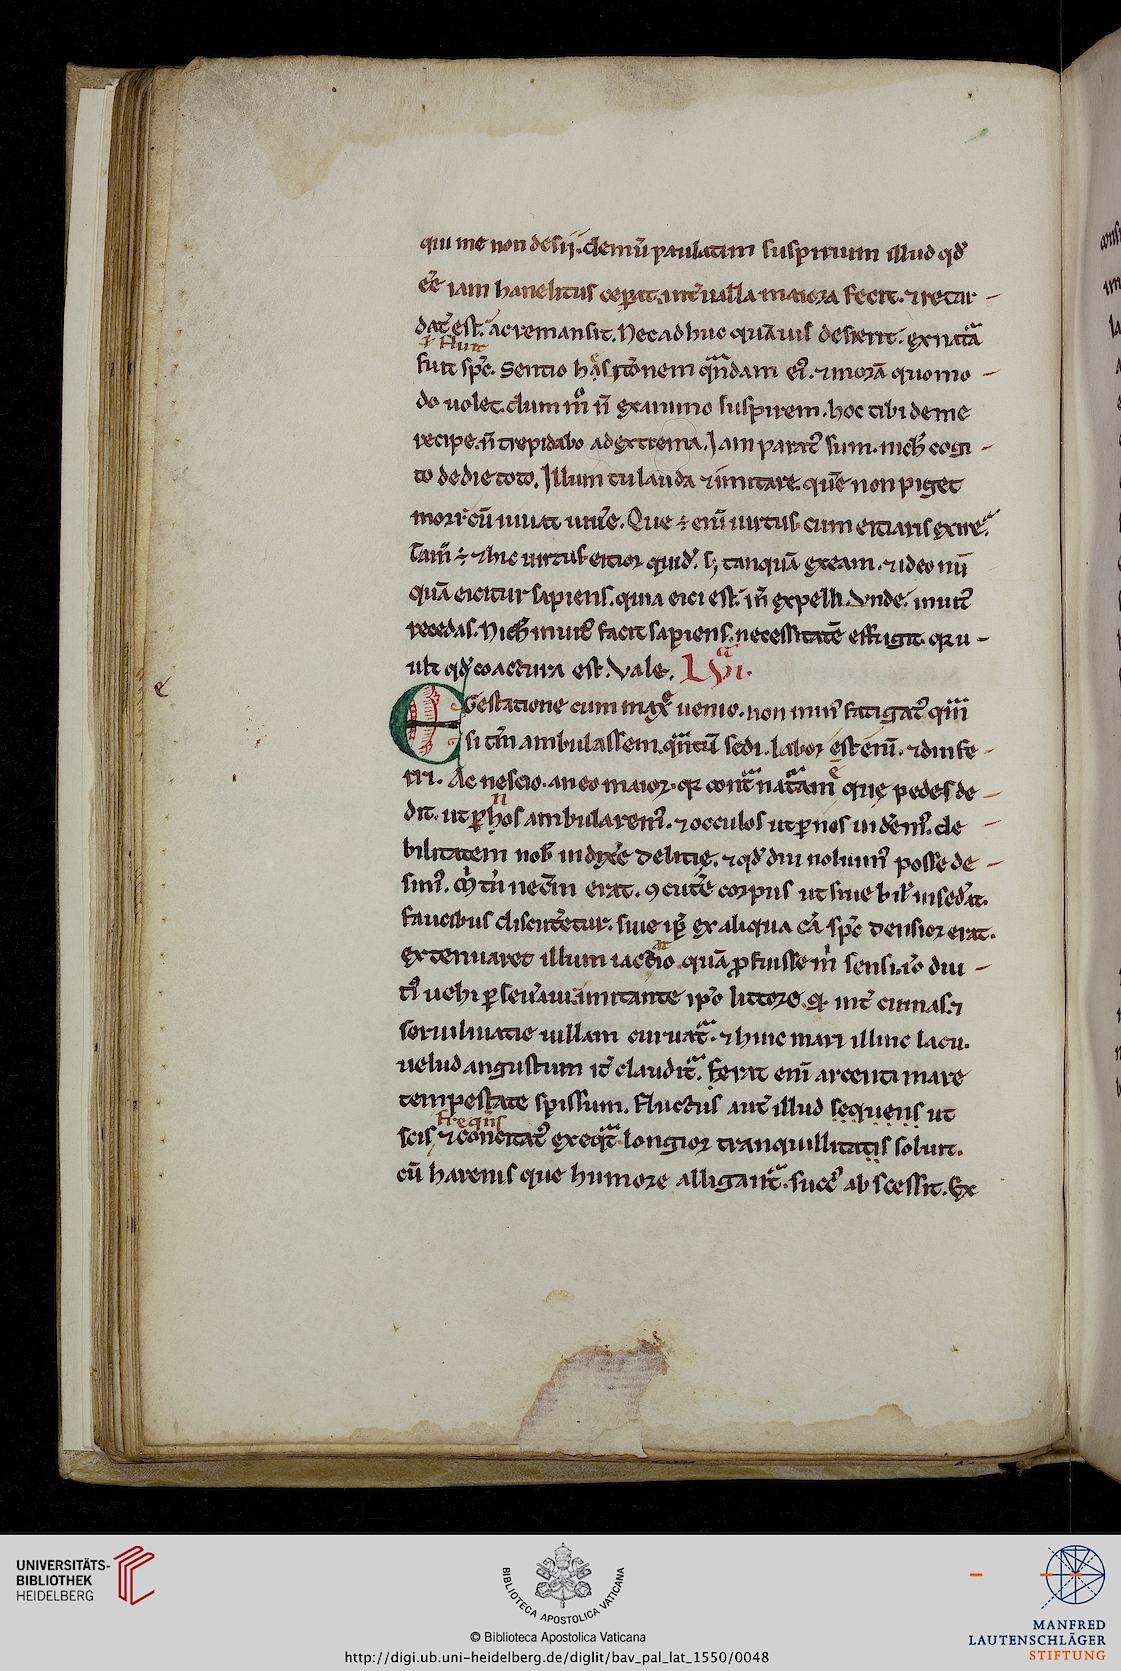 qui me non desij. demū paulatim suspirium illud qd̓
eē iam hanelitus ceperat. int̓ualla maiora fecit. ⁊ retar-
dat̓ est. ac remansit. Nec adhuc quāuis desierit. ex natᵃ
ł fluit
fuit spc̄. Sentio hāsitōnem qᵃndam ei᷒. ⁊ morā quomo-
do uolet. dum m̊ n̄ ex animo suspirem. hoc tibi de me
recipe. n̄ trepidabo ad extrema. Iam parat᷒ sum. nich̄ cogi-
to de die toto. Illum tu lauda ⁊ imitare. quē non piget
mori. cū iuuat uiuēe. Que ÷ enī uirtus. cum eiciaris exire.
Tam̄ ÷ ⁊ hic uirtus. eicior quid̓. sꝫ tanquā exeam. ⁊ ideo nū
quā eicitur sapiens. quia eici est. īn expelli. Vnde. inuit᷒
recedas. Nich̄ inuit᷒ facit sapiens. necessitatē effugit. qꝛ u-
ult qd̓ coactura est. Vale. LVI.
E Gestatione cum maxᵉ uenio. non min᷒ fatigat᷒ qᵃm
si tm̄ ambulassem. qᵃntū sedi. labor est enī. ⁊ diu fe-
rri. Ac nescio. an eo maior. qꝛ contᵃ natᵃam ē que pedes de-
dit. ut ꝑ hos ambularem᷒. ⁊ occulos ut ꝑ nos uidem᷒. de-
bilitatem nob̄ indixēe delitię. ⁊ qd̓ diu noluim᷒ posse de-
sim᷒. M̓ tn̄ necm̄ erat. ꝯcutēe corpus ut siue bił insed̓at.
faucibus discut̓etur. siue ip̄e ex aliqua cā spc̄ densior erat.
extenuaret illum iactᵃtio. quā ꝓfuisse m̓ sensi. iō diu-
ti᷒ uehi ꝑseu̓aui. inuitante ip̄o littore. qꝛ int̓ cumas. ⁊
seruiliuatie uillam curuatᵃ. ⁊ hinc mari illinc lacu.
uelud angustum it̓ claudit̓. Ferit enī arcenti mare
tempestate spissum. Fluctus aut̓ illud sequens ut
freqn̄s
scis, ⁊ concitat᷒ exeqᵃt. longior tranquillitatis soluit.
cū harenis que humore alligant̓. succ᷒ abscessit. Ex
e
UNIVERSITÄTS-
BIBLIOTHEK
HEIDELBERG
BIBLIOTECA APOSTOLICA VATICANA
© Biblioteca Apostolica Vaticana
http://digi.ub.uni-heidelberg.de/diglit/bav_pal_lat_1550/0048
MANFRED
LAUTENSCHLÄGER
STIFTUNG